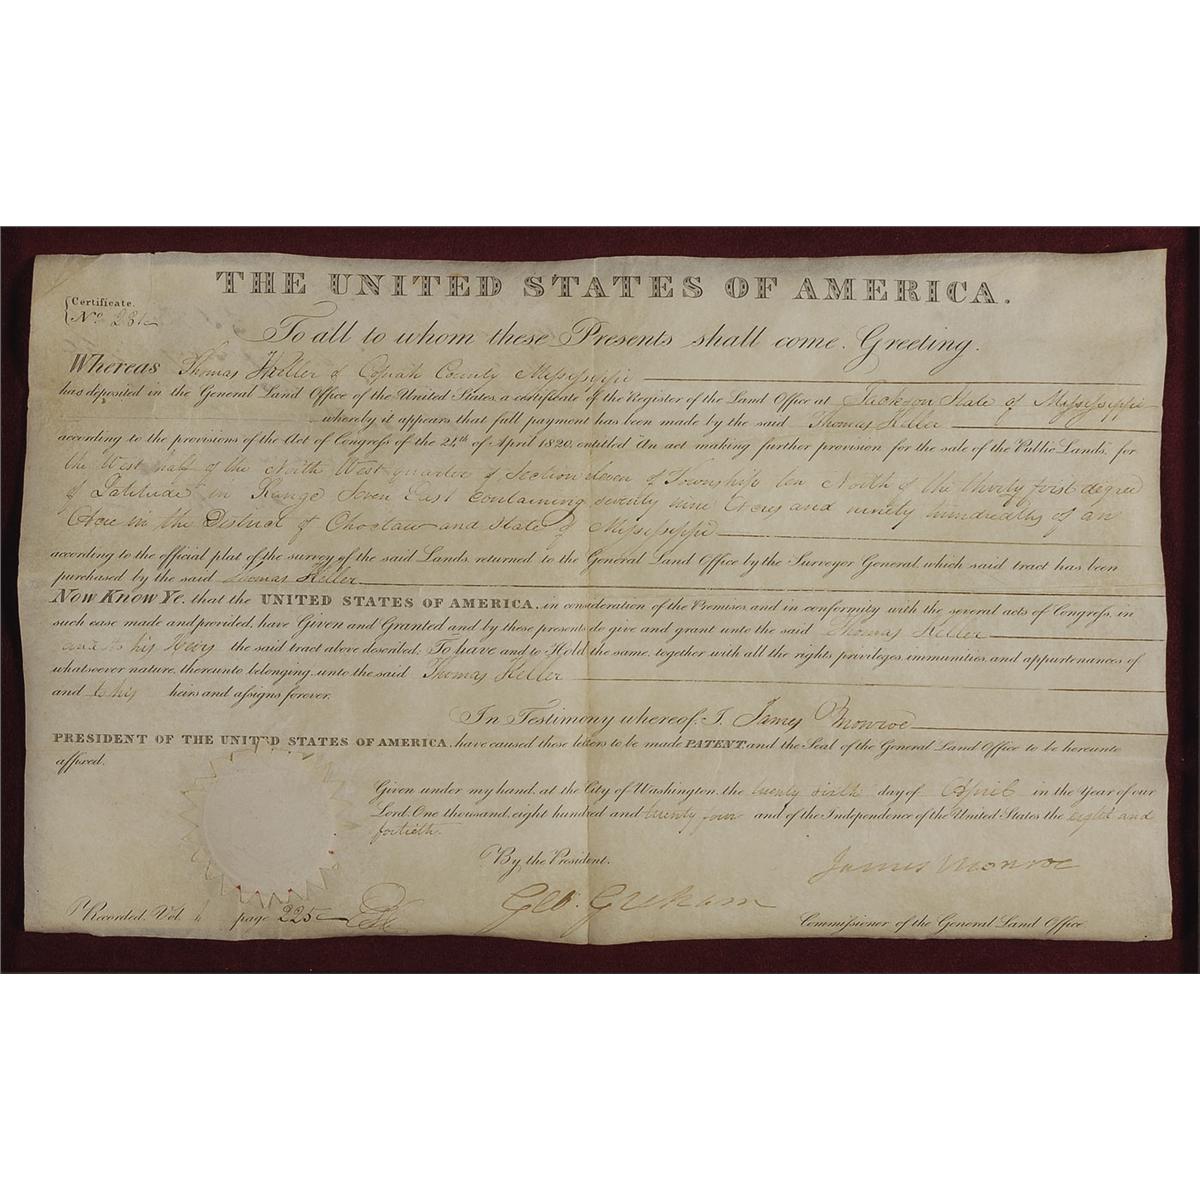 THE UNITED STATES OF AMERICA.
Certificate.
No. 281
To all to whom these Presents shall come, Greeting.
Whereas Thomas Heller of Copiah County Mississippi
has deposited in the General Land Office of the United States, a certificate of the Register of the Land Office at Jackson State of Mississippi
whereby it appears that full payment has been made by the said Thomas Heller
according to the provisions of the Act of Congress of the 24th of April 1820, entitled "An act making further provision for the sale of the Public Lands," for
the West half of the North West quarter of Section Seven of Township ten North of the thirty first degree
of Latitude in Range Seven East Containing seventy nine Acres and ninety hundredths of an
Acre in the District of Choctaw and State of Mississippi
according to the official plat of the survey of the said Lands, returned to the General Land Office by the Surveyor General, which said tract has been
purchased by the said Thomas Heller
Now Know Ye, that the UNITED STATES OF AMERICA, in consideration of the Premises, and in conformity with the several acts of Congress, in
such case made and provided, have Given and Granted and by these presents do give and grant unto the said Thomas Heller
and to his Heirs the said tract above described; To have and to Hold the same, together with all the rights, privileges, immunities, and appurtenances of
whatsoever nature, thereunto belonging, unto the said Thomas Heller
and to his heirs and assigns forever.
In Testimony whereof, I, James Monroe
PRESIDENT OF THE UNITED STATES OF AMERICA, have caused these letters to be made PATENT, and the Seal of the General Land Office to be hereunto
affixed.
Given under my hand, at the City of Washington, the twenty sixth day of April in the Year of our
Lord, One thousand, eight hundred and twenty four and of the Independence of the United States the eight and
fortieth.
By the President.
James Monroe
Geo: Graham
Recorded, Vol. page 225
Commissioner of the General Land Office